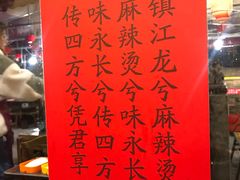 镇江龙兮麻辣烫
麻辣烫兮味永长
味永长兮传四方
传四方兮凭君享